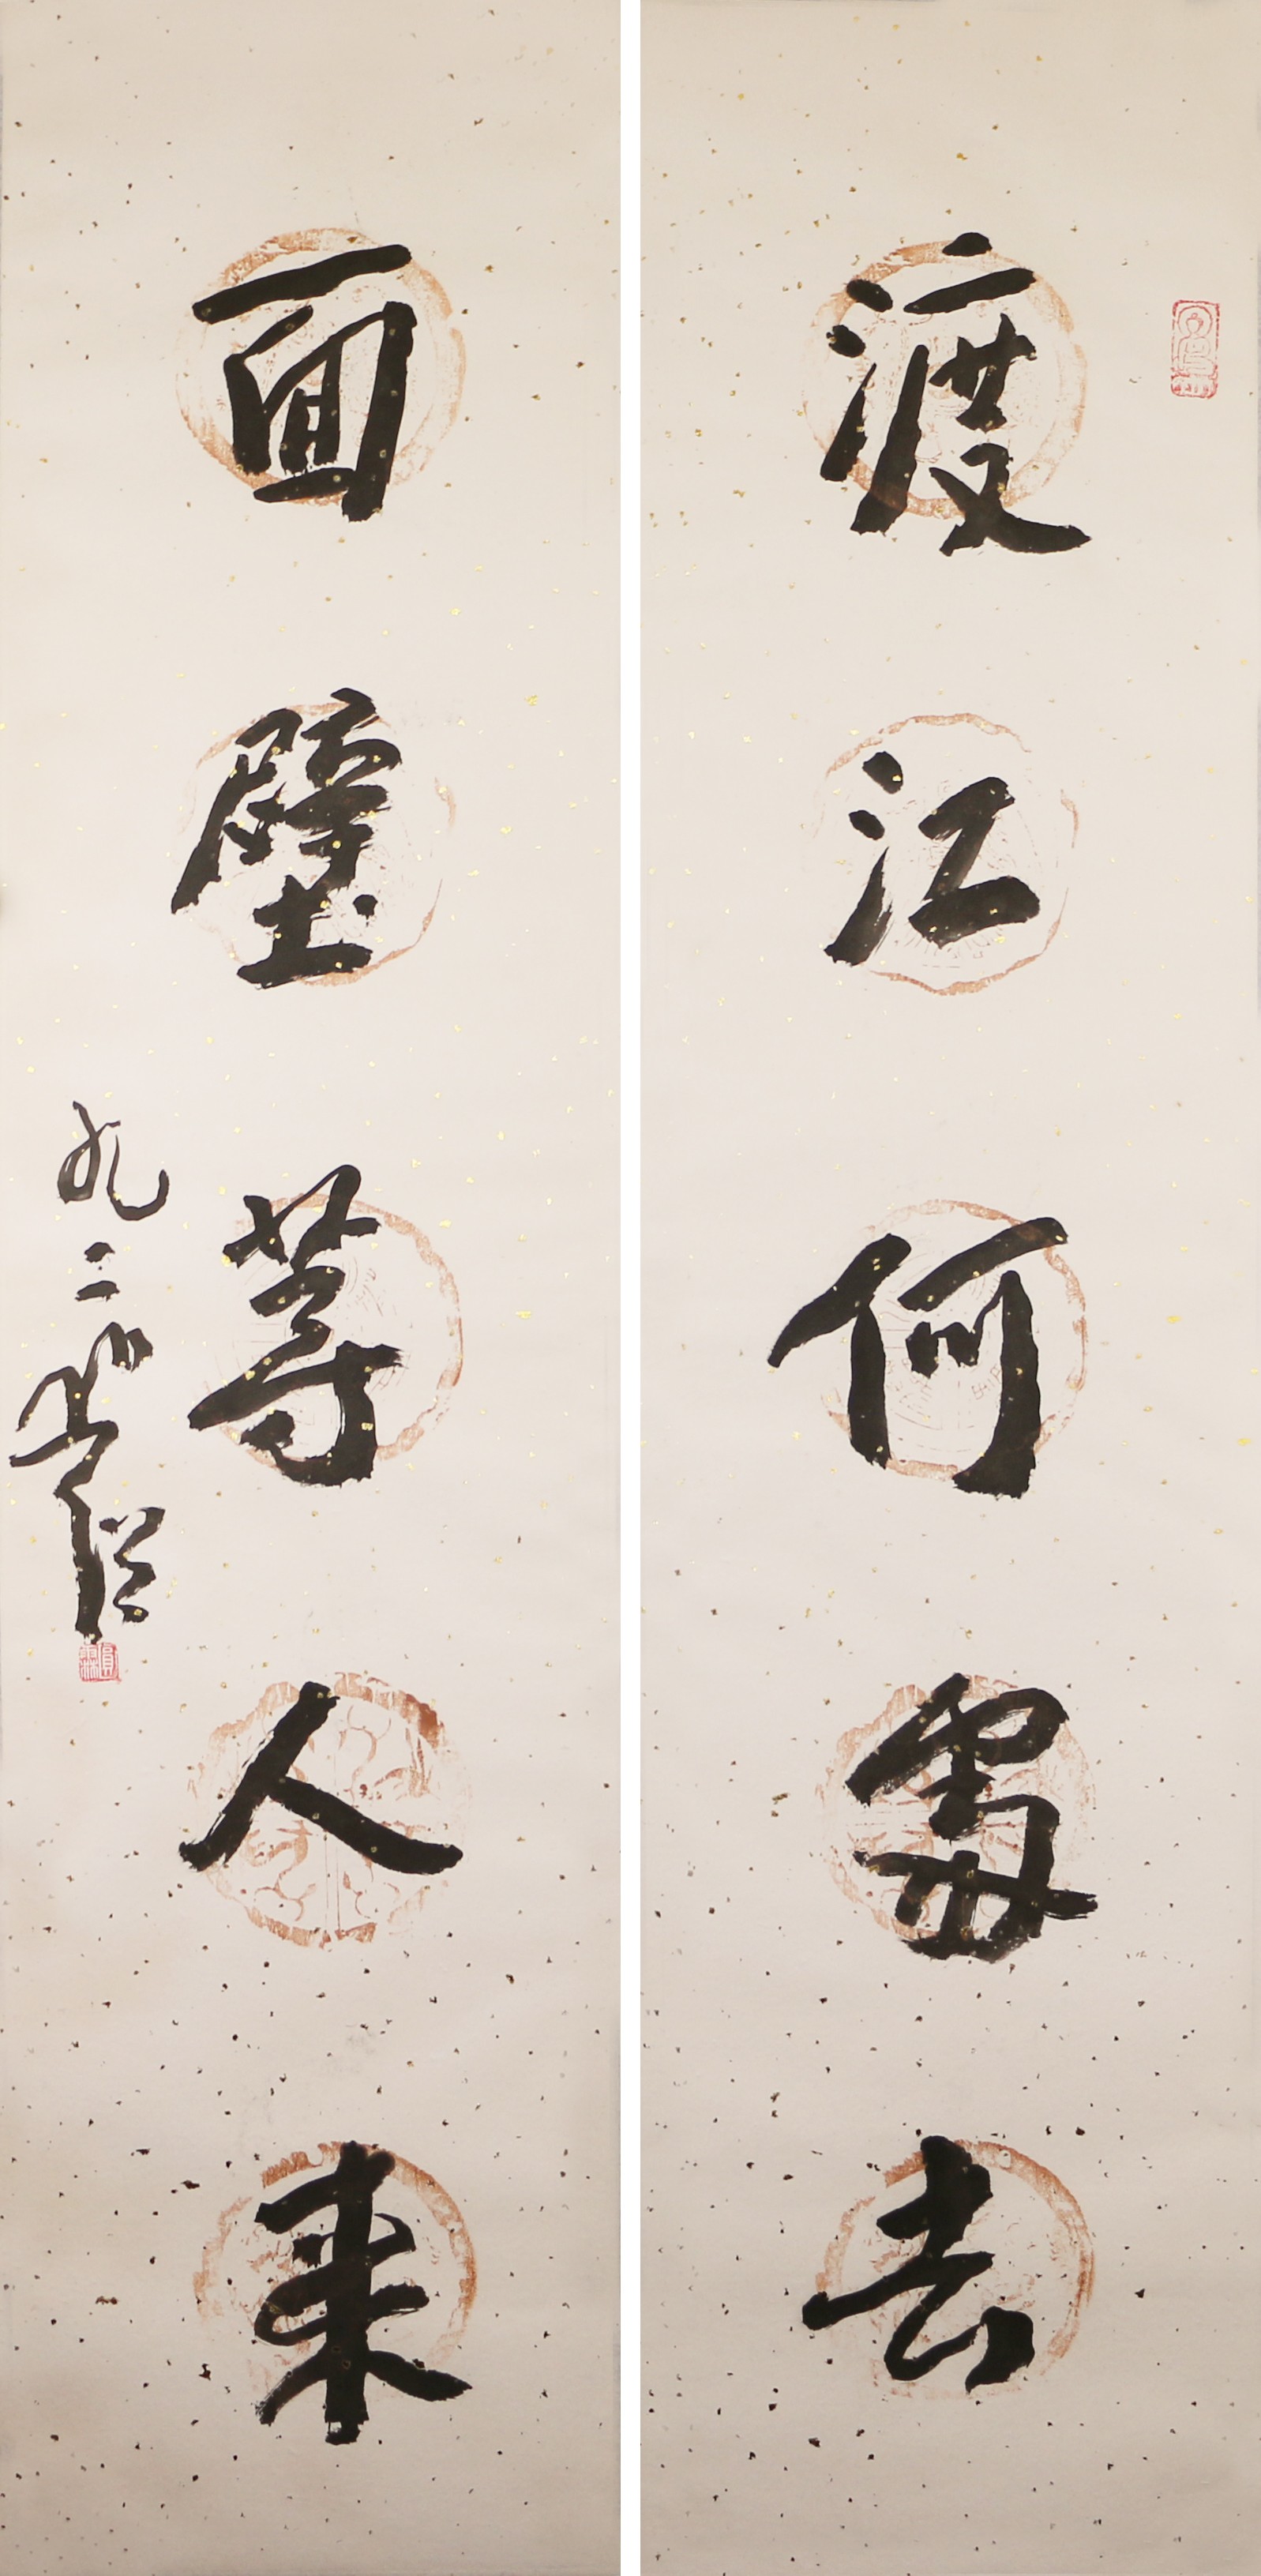 渡江何處去
面壁等人來
九二叟